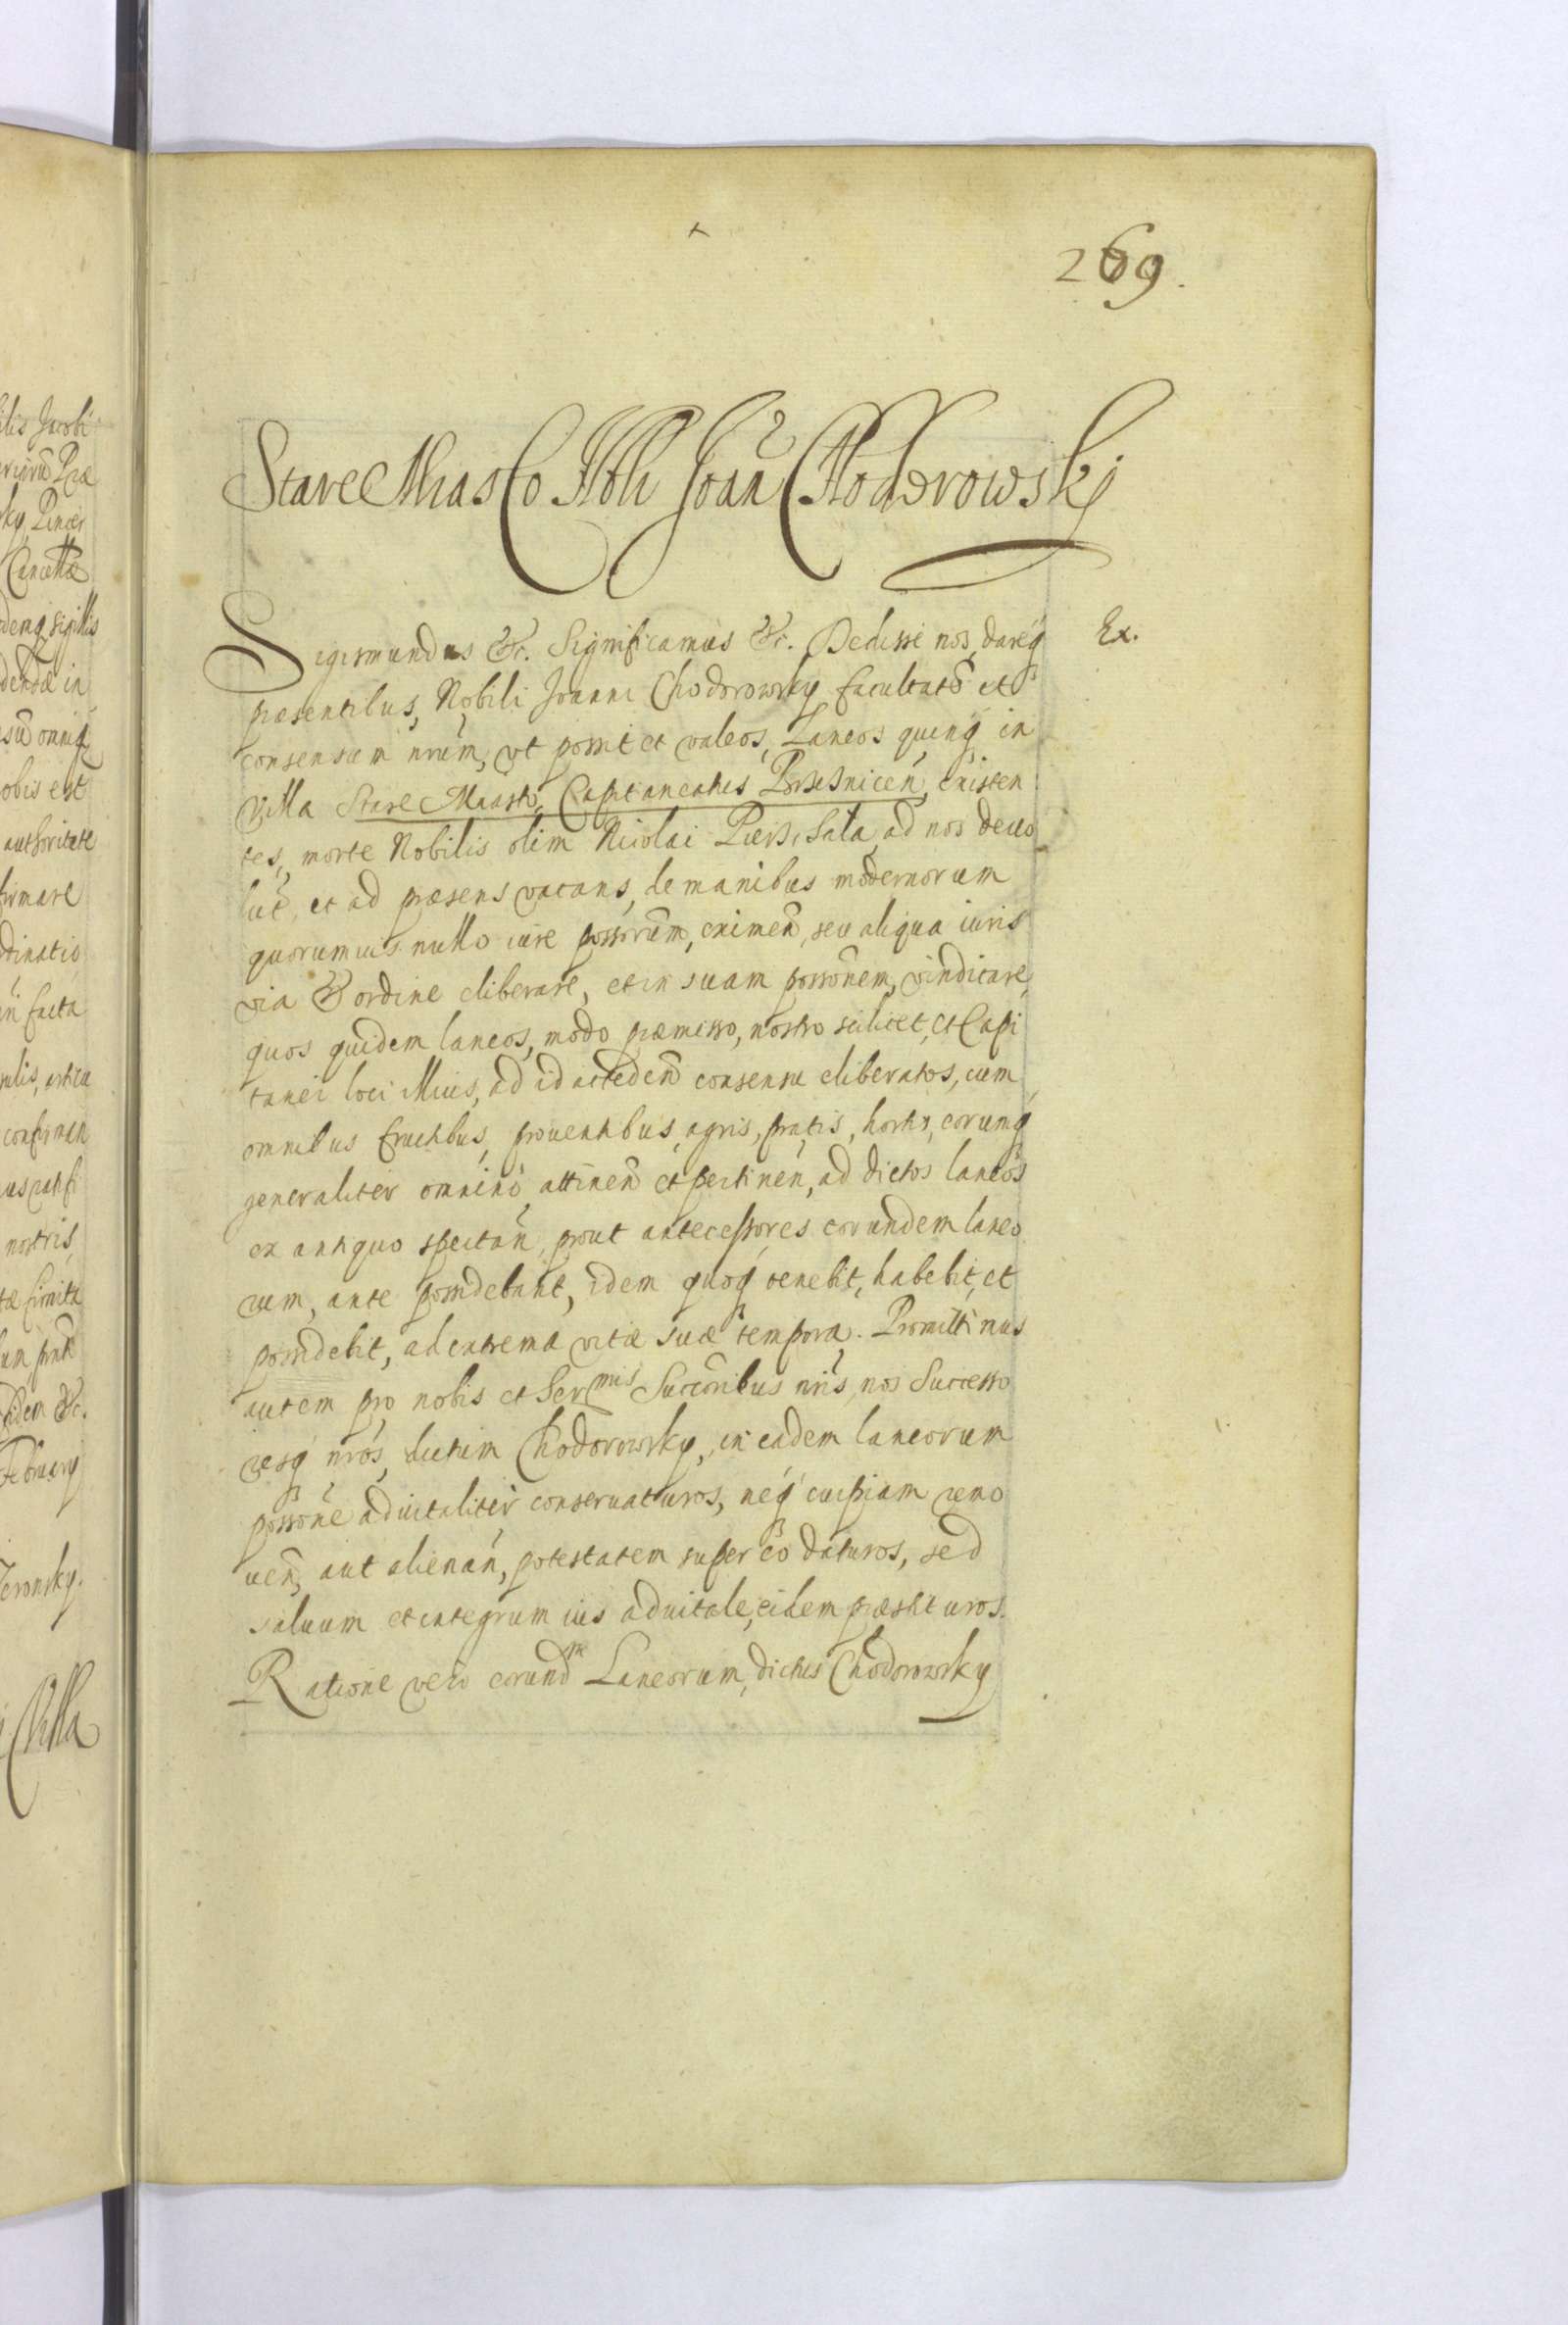 269.
Stare Miasto Nob Joañ Chodorowskj
Sigismundus &c. Significamus &c. Dedisse nos, dareq́ Ex.
præsentibus, Nobili Joanni Chodorowsky facultatẽ et
consensum nrũm, vt possit et valeos, Laneos quinq́ in
Villa Stare Miasto, Capitaneatus Brzesnicen̄, existen
tes, morte Nobilis olim Nicolai ad nos deuo
lut̃, et ad præsens vacans, de manibus modernorum
quorumuis nullo iure possorũm, eximen̄, seu aliqua iuris
via & ordine eliberare, et in suam possonẽm, vindicare,
quos quidem laneos, modo præmisso, nostro scilicet, et Capi
tanei loci illius, ad id acceden̄ consensu eliberatos, cum
omnibus fructibus, prouentibus, agris, pratis, hortis, eorumq́
generaliter omnino attinen̄ et pertinen̄, ad dictos laneos
ex antiquo spectan̄, prout antecessores eorundem laneo
rum, ante possidebant, idem quoq́ tenebit, habebit, et
possidebit, ad extrema vitæ suæ tempora. Promittimus
autem pro nobis et Ser^mis Succor̃ibus nr̃is, nos Successo
resq́ nr̃os, dictum Chodorowsky, in eadem laneorum
possonẽ aduitaliter conseruaturos, neq́ cuipiam remo
uen̄, aut alienan̄, potestatem super eo daturos, sed
saluum et integrum ius aduitale, eidem præstituros.
Ratione vero eorund^m Laneorum, dictus Chodorowsky